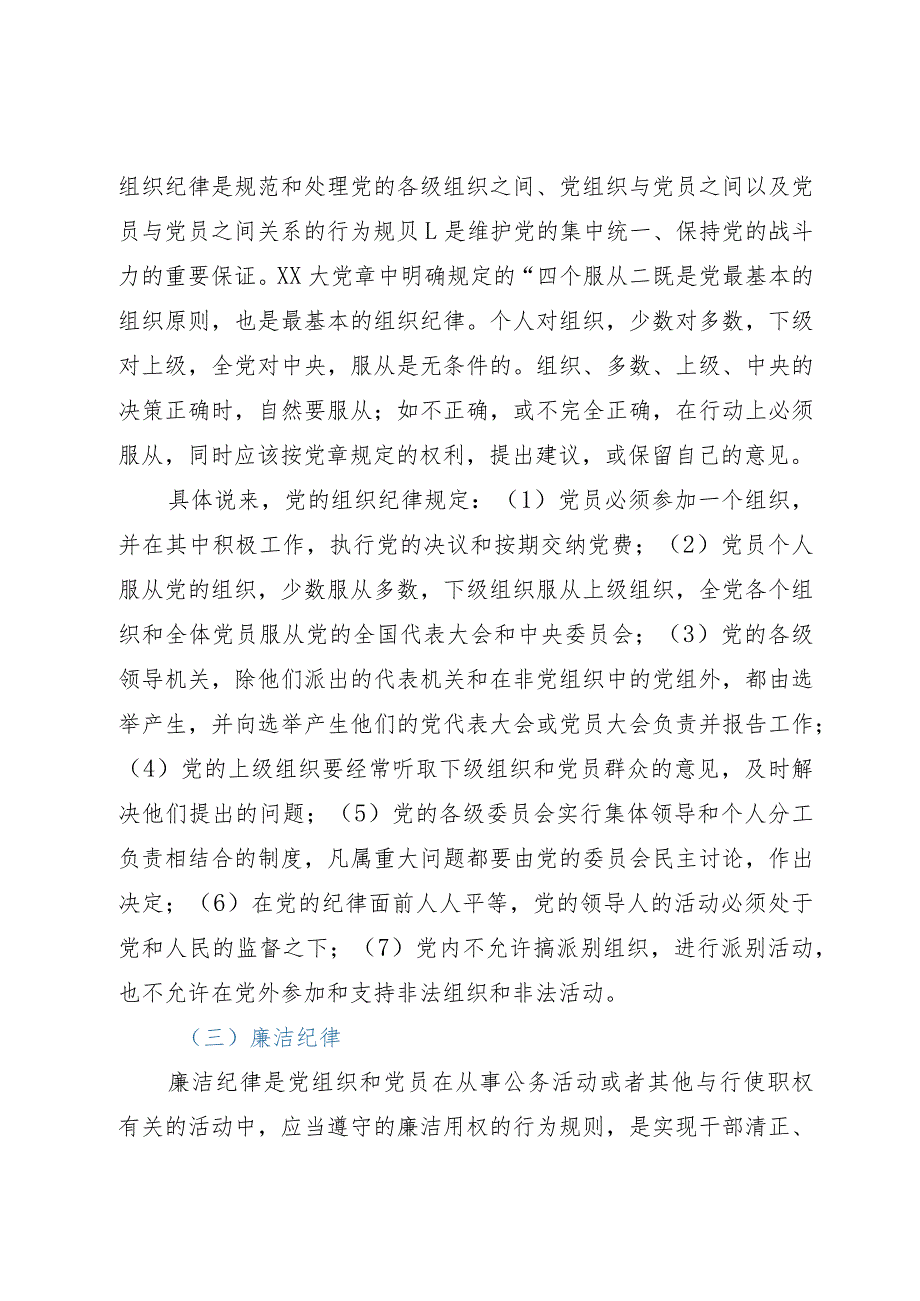 组织纪律是规范和处理党的各级组织之间、党组织与党员之间以及党
员与党员之间关系的行为规贝L是维护党的集中统一、保持党的战斗
力的重要保证。XX大党章中明确规定的“四个服从二既是党最基本的
组织原则，也是最基本的组织纪律。个人对组织，少数对多数，下级
对上级，全党对中央，服从是无条件的。组织、多数、上级、中央的
决策正确时，自然要服从；如不正确，或不完全正确，在行动上必须
服从，同时应该按党章规定的权利，提出建议，或保留自己的意见。
具体说来，党的组织纪律规定：（1）党员必须参加一个组织，
并在其中积极工作，执行党的决议和按期交纳党费；（2）党员个人
服从党的组织，少数服从多数，下级组织服从上级组织，全党各个组
织和全体党员服从党的全国代表大会和中央委员会；（3）党的各级
领导机关，除他们派出的代表机关和在非党组织中的党组外，都由选
举产生，并向选举产生他们的党代表大会或党员大会负责并报告工作；
（4）党的上级组织要经常听取下级组织和党员群众的意见，及时解
决他们提出的问题；（5）党的各级委员会实行集体领导和个人分工
负责相结合的制度，凡属重大问题都要由党的委员会民主讨论，作出
决定；（6）在党的纪律面前人人平等，党的领导人的活动必须处于
党和人民的监督之下；（7）党内不允许搞派别组织，进行派别活动，
也不允许在党外参加和支持非法组织和非法活动。
（三）廉洁纪律
廉洁纪律是党组织和党员在从事公务活动或者其他与行使职权
有关的活动中，应当遵守的廉洁用权的行为规则，是实现干部清正、